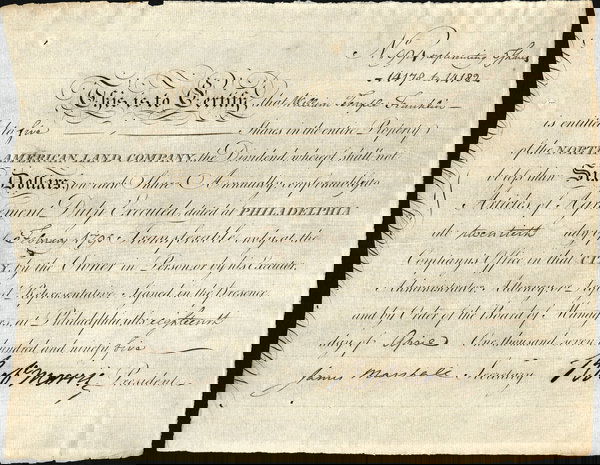 This is to Certify that William Temple Franklin
is entitled to five Shares in the entire Property
of the NORTH AMERICAN LAND COMPANY, the Dividend whereof shall not
be less than Six Dollars on each Share Annually
Articles of Agreement Duly Executed dated at PHILADELPHIA
day of February 1795 Transferable only at the
Company's Office in that CITY, by the Owner in Person or by his Executor
Administrator Attorney or Legal Representative Signed in the Presence
and by Order of the Board of Managers, at Philadelphia this eighteenth
day of One thousand seven
hundred and ninety five
Rob Morris President James Marshall Secretary